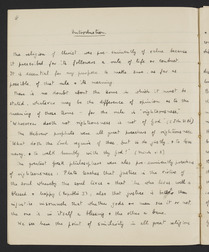 Introduction
The religion of Christ was pre-eminently of value because
it prescribed for its followers a rule of life or conduct.
It is essential for my purpose to make sure as far as
possible of that rule & its meaning.
There is no doubt about the terms in which it must be
stated, whatever may be the difference of opinion as to the
meaning of those terms - for the rule is 'righteousness.'
'Whosoever doeth not righteousness is not of God'
The Hebrew prophets were all great preachers of righteousness.
What doth the Lord require of thee but to do justly & to love
mercy & to walk humbly with thy God?
The greatest Greek philosophers were also pre-eminently preachers
of righteousness. Plato teaches that justice is the virtue of
the soul whereby the soul lives & that 'he who lives well is
blessed & happy'; that justice is better than
injustice irrespectively that whether gods or men see it or not
the one is in itself a blessing & the other a bane.
We see here the point of similarity in all great religious